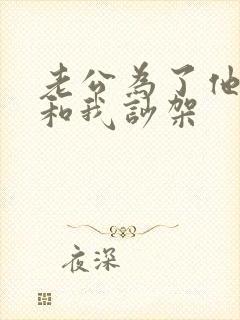 老公為了他
和我訬架
夜深